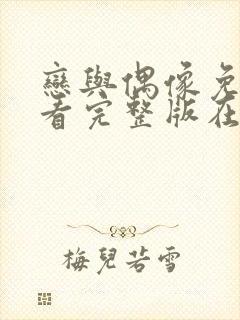 戀與偶像免
看完整版在
梅兒若雪